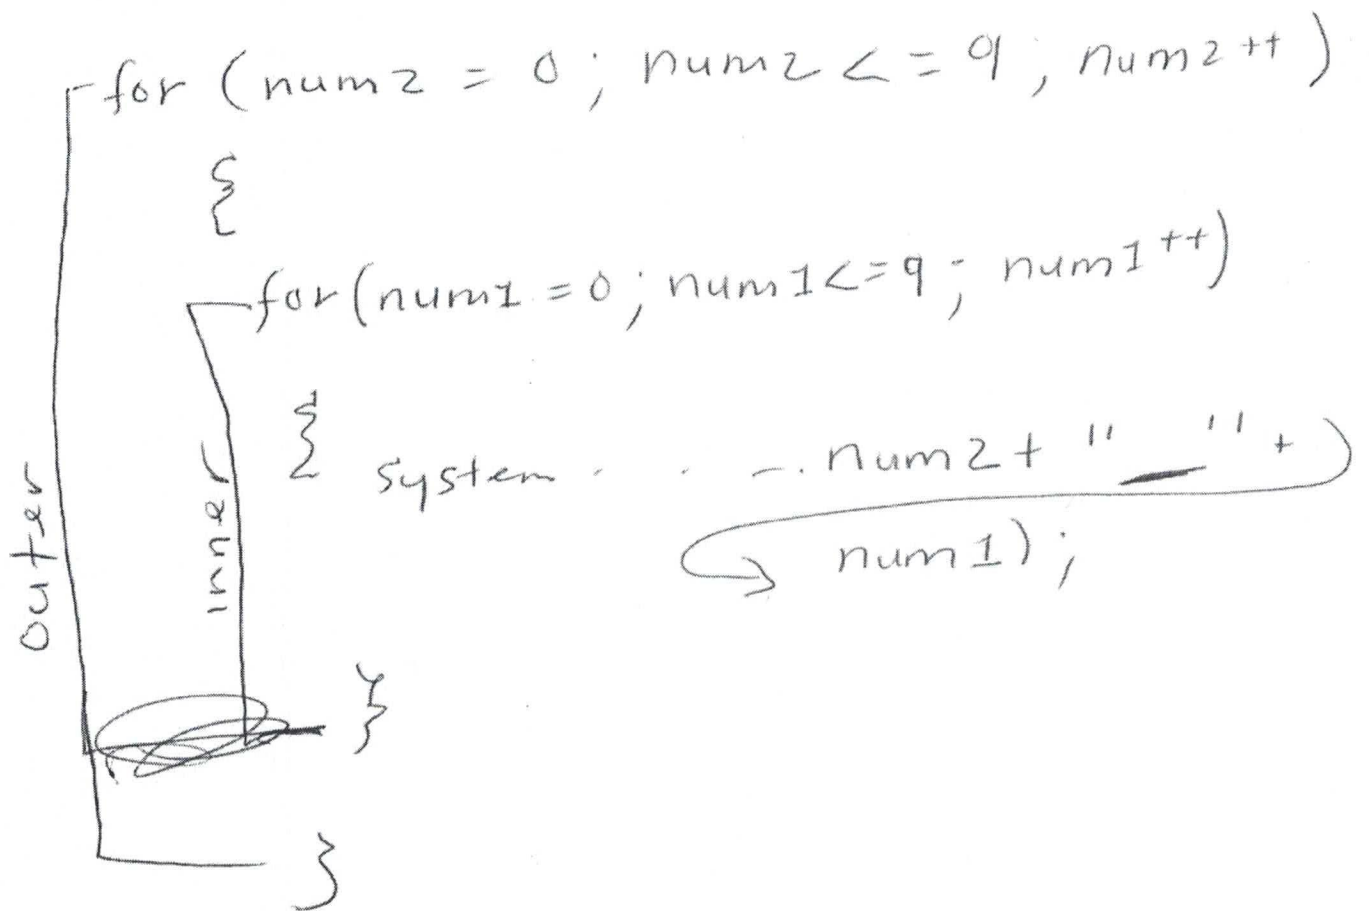 for (num2 = 0; num2 <= 9; num2++)
{
for(num1 = 0; num1<=9; num1++)
{ system . . -. num2 + "_" +
num1);
}
}
outer
inner